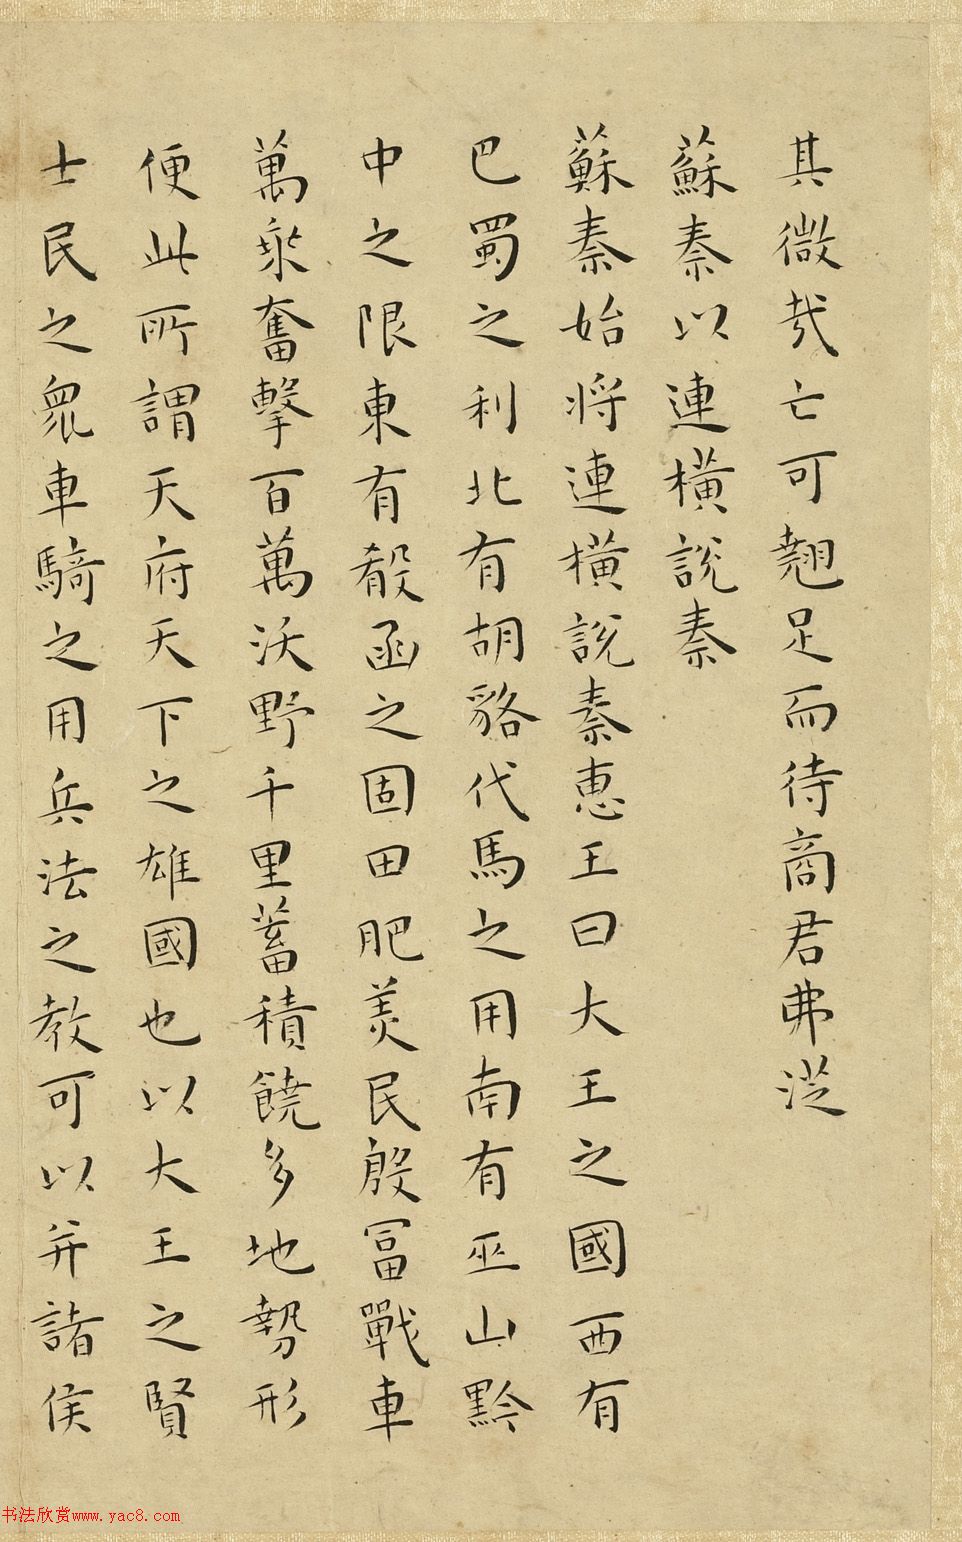 其微哉亡可翹足而待商君弗從
蘇秦以連橫說秦
蘇秦始將連橫說秦惠王曰大王之國西有
巴蜀之利北有胡貉代馬之用南有巫山黔
中之限東有殽函之固田肥美民殷冨戰車
萬乘奮擊百萬沃野千里蓄積饒多地勢形
便此所謂天府天下之雄國也以大王之賢
士民之眾車騎之用兵法之教可以并諸侯
书法欣赏www.yac8.com